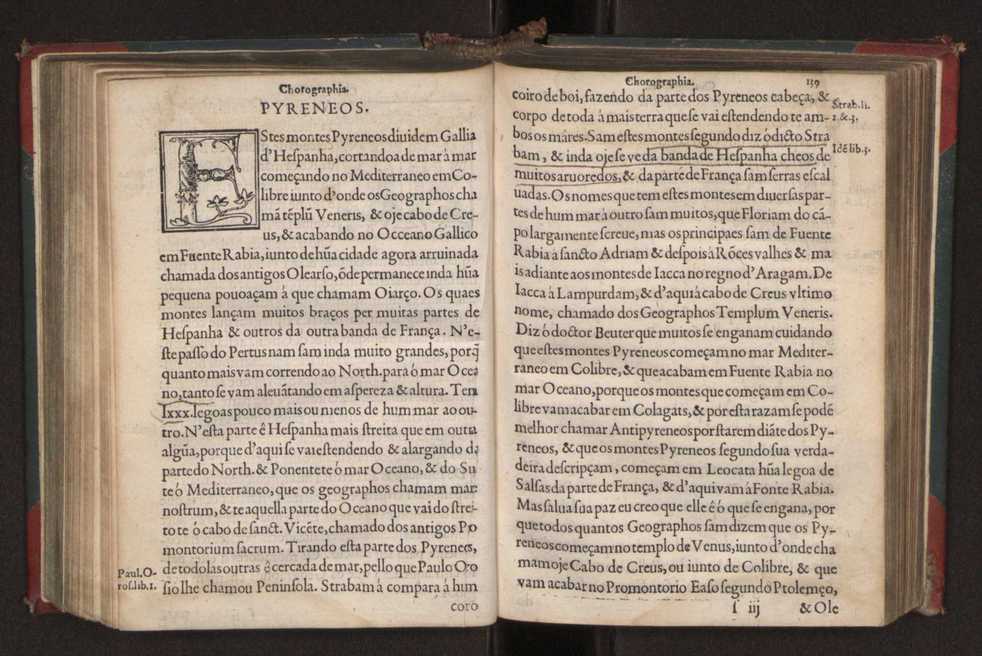 Chorographia.
PYRENEOS.
EStes montes Pyreneos diuidem Gallia
d'Hespanha, cortandoa de mar à mar
começando no Mediterraneo em Co-
libre iunto d'onde os Geographos cha
mã tẽplũ Veneris, & oje cabo de Cre-
us, & acabando no Occeano Gallico
em Fuente Rabia, iunto de hũa cidade agora arruinada
chamada dos antigos Olearso, õde permanece inda hũa
pequena pouoaçam à que chamam Oiarço. Os quaes
montes lançam muitos braços per muitas partes de
Hespanha & outros da outra banda de França. N'e-
ste passo do Pertus nam sam inda muito grandes, porq̃
quanto mais vam correndo ao North. para ó mar Ocea
no, tanto se vam aleuãtando em aspereza & altura. Tem
lxxx. legoas pouco mais ou menos de hum mar ao ou-
tro. N'esta parte ê Hespanha mais streita que em outra
algũa, porque d'aqui se vai estendendo & alargando da
parte do North. & Ponente te ò mar Oceano, & do Su
te ó Mediterraneo, que os geographos chamam mar
nostrum, & te aquella parte do Oceano que vai do strei-
to te ò cabo de sanct. Vicẽte, chamado dos antigos Pro
montorium sacrum. Tirando esta parte dos Pyrenees,
de todolas outras ê cercada de mar, pello que Paulo Oro
sio lhe chamou Peninsola. Strabam à compara á hum
Paul. O-
ros. lib. 1.
coro
Chorographia. 139
coiro de boi, fazendo da parte dos Pyreneos cabeça, &
corpo de toda à mais terra que se vai estendendo te am-
bos os máres. Sam estes montes segundo diz ó dicto Stra
bam, & inda oje se ve da banda de Hespanha cheos de
muitos aruoredos, & da parte de França sam serras escal
uadas. Os nomes que tem estes montes em diuersas par-
tes de hum mar à outro sam muitos, que Floriam do cã-
po largamente screue, mas os principaes sam de Fuente
Rabia à sancto Adriam & despois à Rõces valhes & ma
is adiante aos montes de Iacca no regno d'Aragam. De
Iacca à Lampurdam, & d'aqui à cabo de Creus vltimo
nome, chamado dos Geographos Templum Veneris.
Diz ó doctor Beuter que muitos se enganam cuidando
que estes montes Pyreneos começam no mar Mediter-
raneo em Colibre, & que acabam em Fuente Rabia no
mar Oceano, porque os montes que começam em Co-
libre vam acabar em Colagats, & por esta razam se podẽ
melhor chamar Antipyreneos por starem diãte dos Py-
reneos, & que os montes Pyreneos segundo sua verda-
deira descripçam, começam em Leocata hũa legoa de
Salsas da parte de França, & d'aqui vam à Fonte Rabia.
Mas salua sua paz eu creo que elle é ó que se engana, por
que todos quantos Geographos sam dizem que os Py-
reneos começam no templo de Venus, iunto d'onde cha
mam oje Cabo de Creus, ou iunto de Colibre, & que
vam acabar no Promontorio Easo segundo Ptolemęo,
Strab. li.
2. & 3.
Idẽ lib. 3.
s iij & Ole